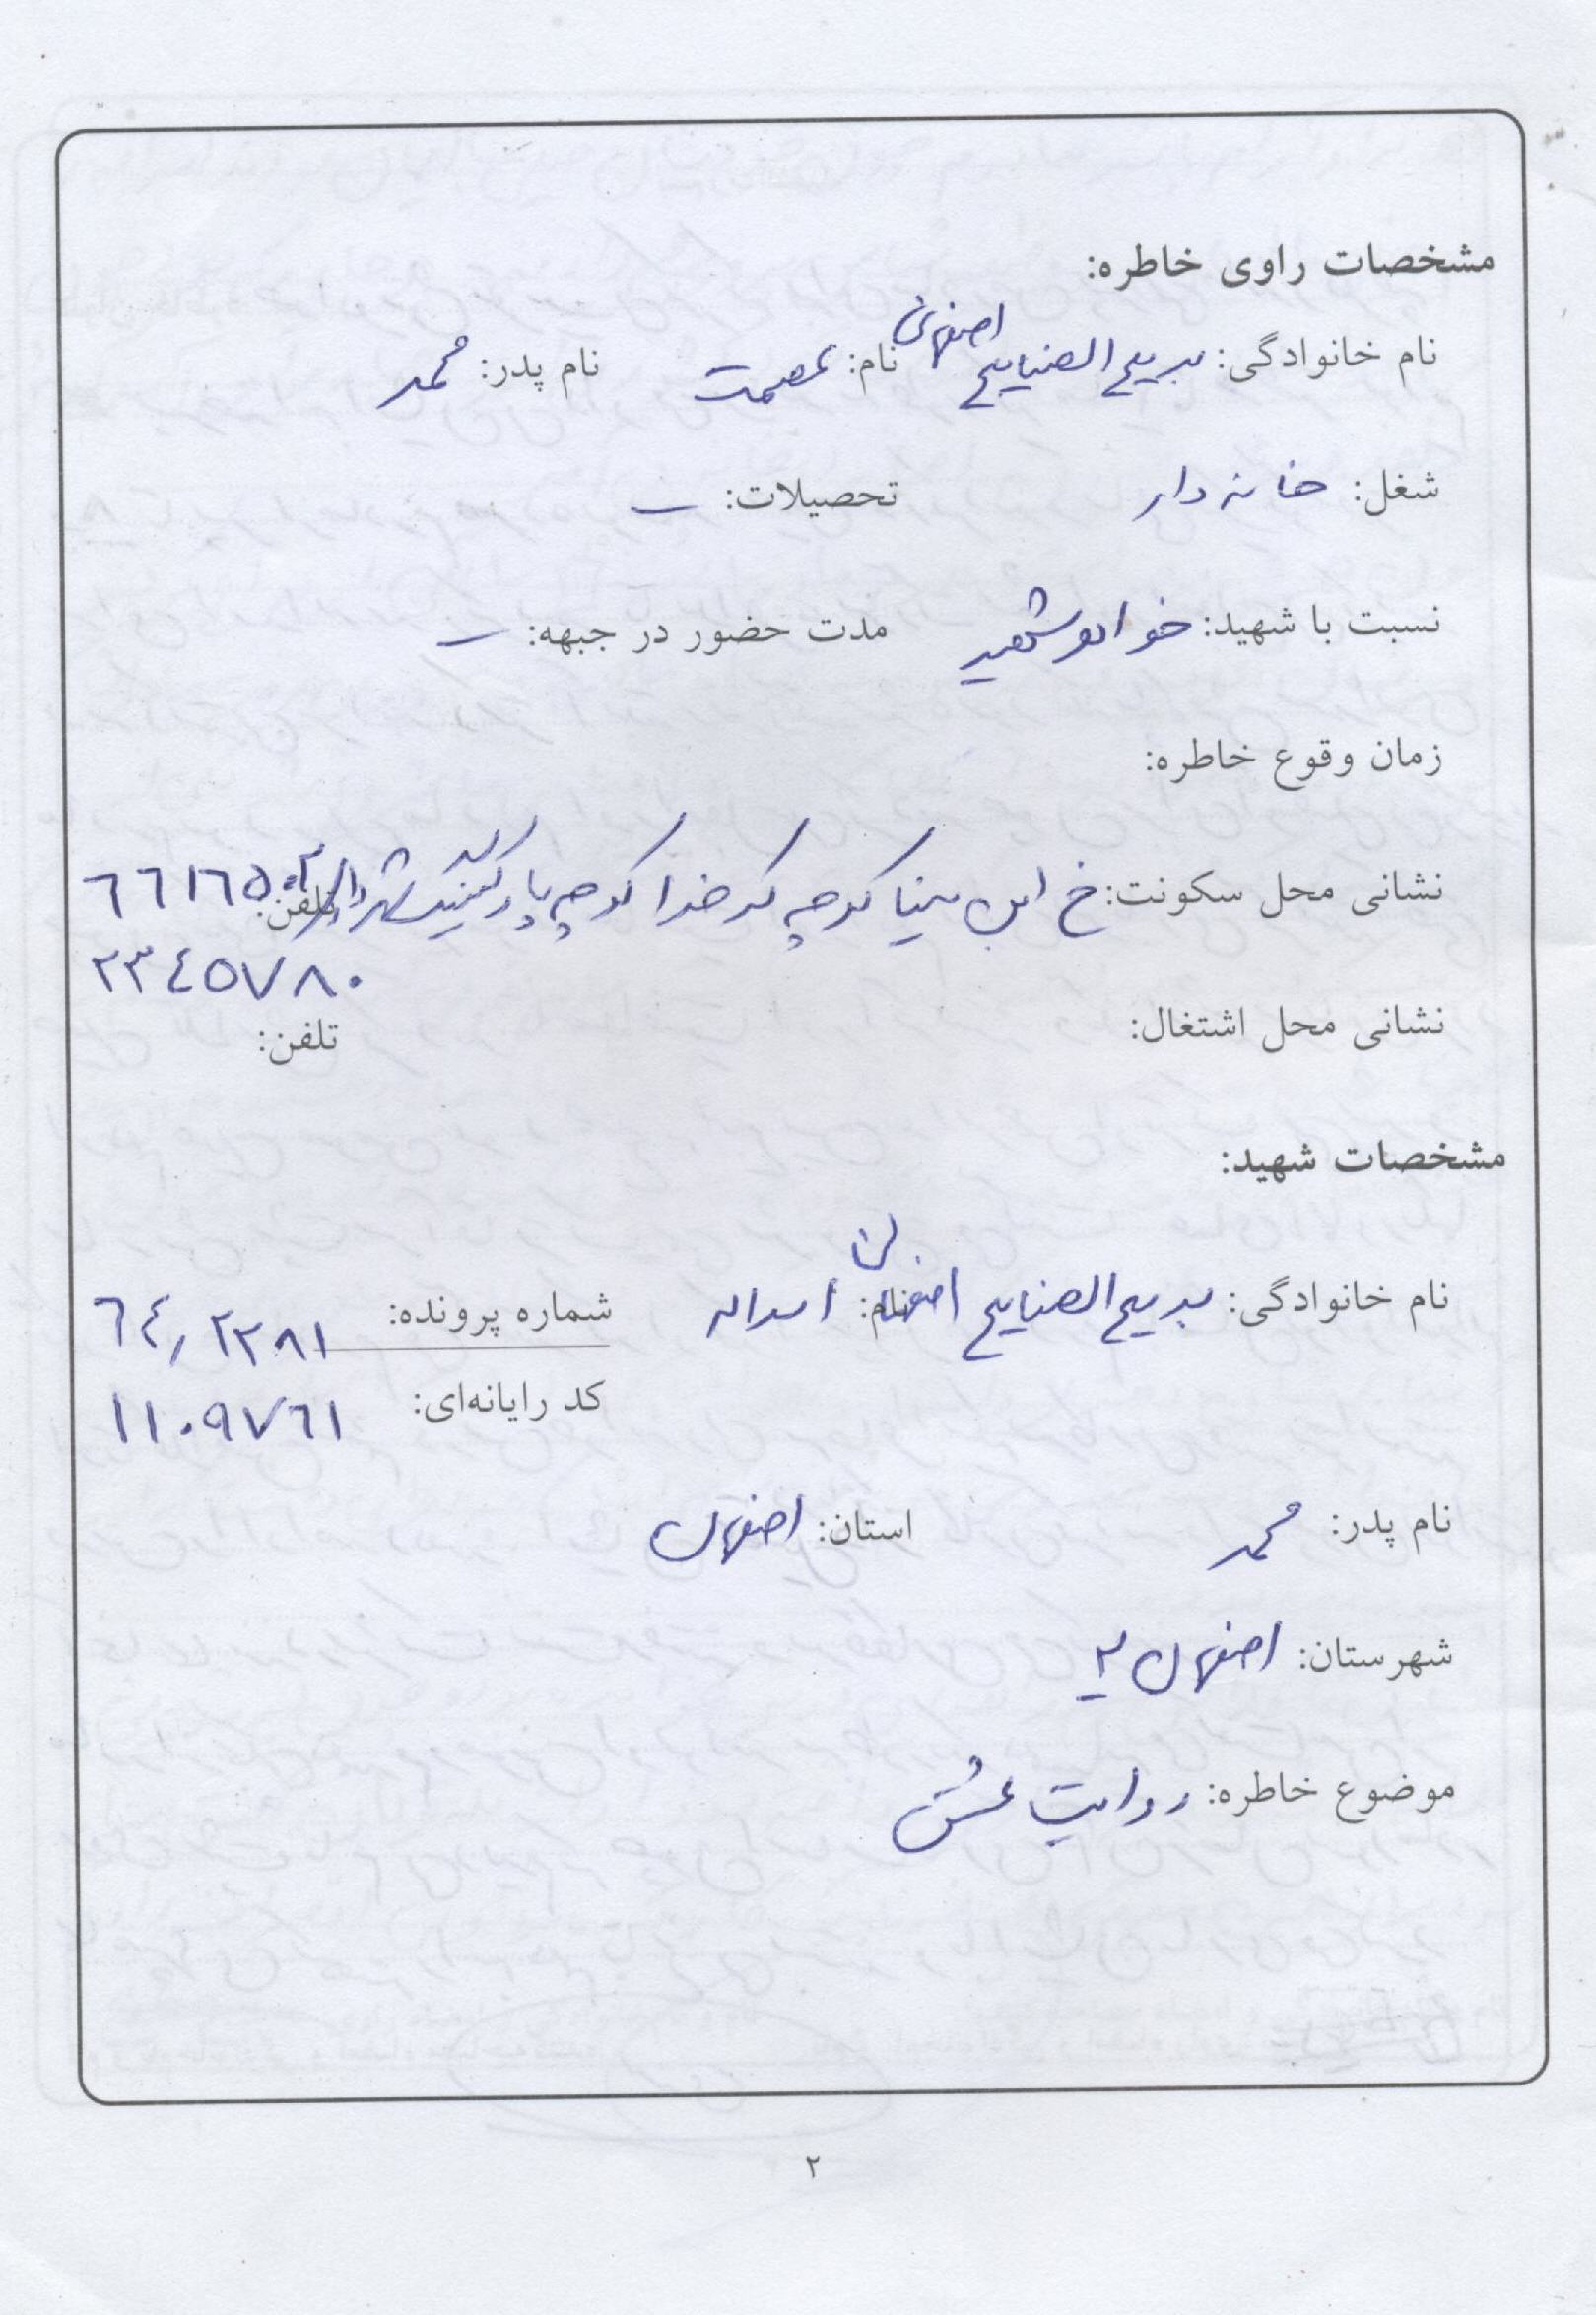 مشخصات راوی خاطره:
نام خانوادگی: بدیع الصنایع اصفهانی نام: عصمت نام پدر: محمد
شغل: خانه دار تحصیلات: ــ
نسبت با شهید: خواهر شهید مدت حضور در جبهه: ــ
زمان وقوع خاطره:
نشانی محل سکونت: خ ابن سینا کوچه کدخدا کوچه پارکینگ شهرداری تلفن:
۲۳۴۵۷۸۰
نشانی محل اشتغال: تلفن:
مشخصات شهید:
نام خانوادگی: بدیع الصنایع اصفهانی نام: اسداله شماره پرونده: ۶۴٫۲۲۸۱
کد رایانه‌ای: ۱۱۰۹۷۶۱
نام پدر: محمد استان: اصفهان
شهرستان: اصفهان ۲
موضوع خاطره: روایت عشق
۲